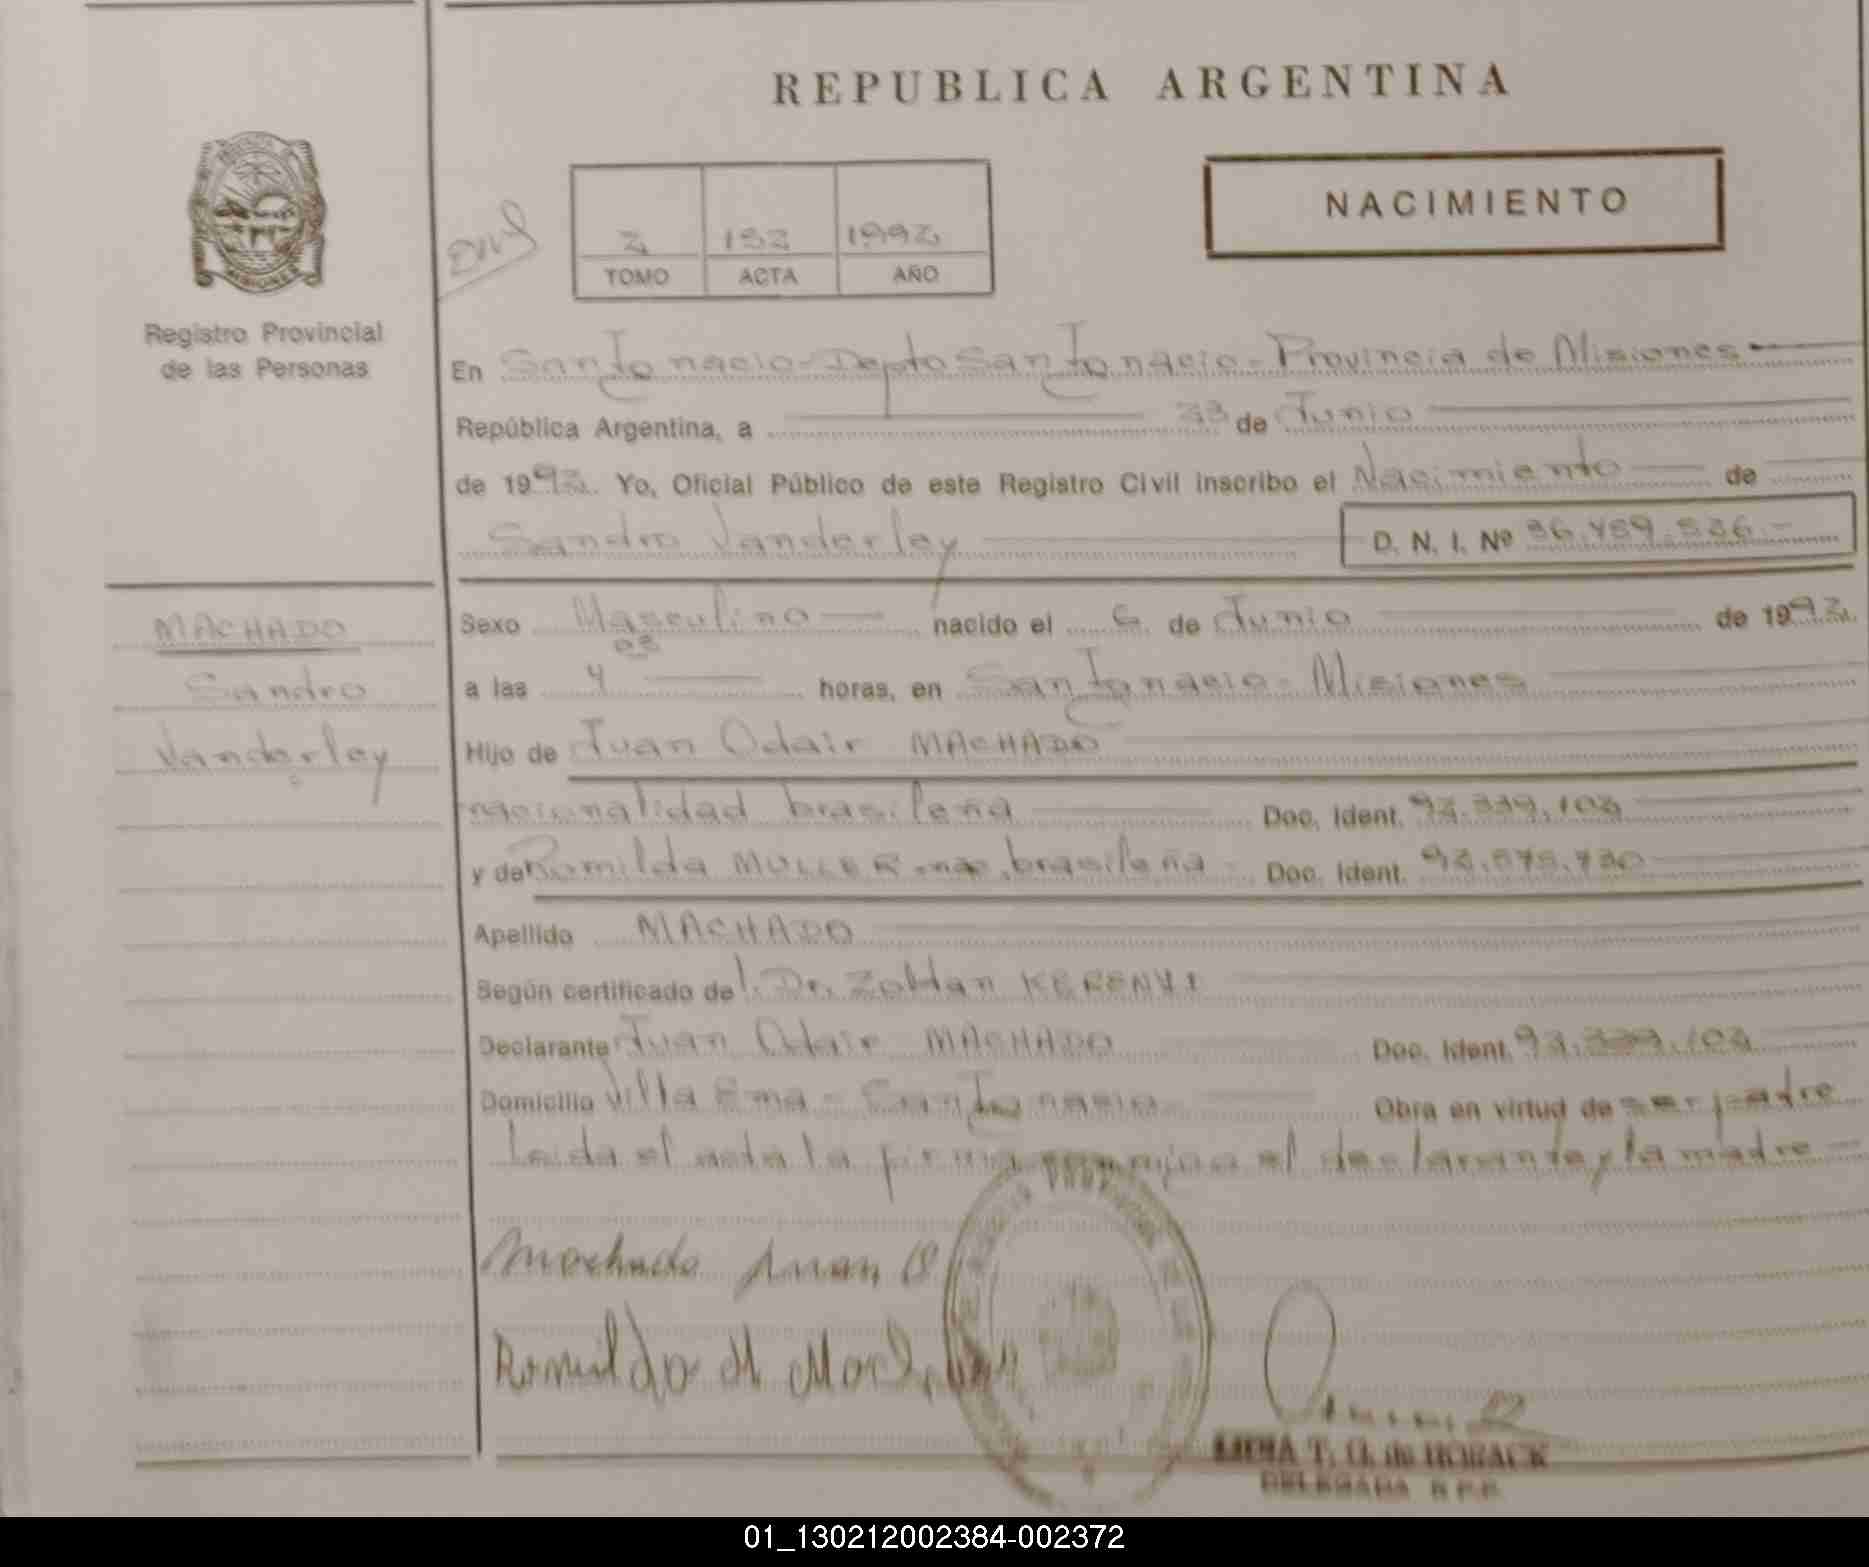 REPUBLICA ARGENTINA
NACIMIENTO
2 152 1992
TOMO ACTA AÑO
MISIONES
Registro Provincial
de las Personas
En San Ignacio - Depto San Ignacio - Provincia de Misiones
República Argentina, a 23 de Junio
de 1992. Yo, Oficial Público de este Registro Civil inscribo el Nacimiento de
Sandro Vanderley D. N. I. Nº 36.459.536.-
MACHADO
Sandro
Vanderley
Sexo Masculino nacido el 6 de Junio de 1992.
a las 4 horas, en San Ignacio - Misiones
Hijo de Juan Odair MACHADO
nacionalidad brasileña Doc. Ident. 92.339.103
y de Romilda MULLER nac. brasileña Doc. Ident.
Apellido MACHADO
Según certificado del Dr. Zoltan KERENYI
Declarante Juan Odair MACHADO Doc. Ident. 92.339.103
Domicilio Villa Ema - San Ignacio Obra en virtud de ser padre
Leida el acta la firma conmigo el declarante y la madre
Machado Juan O
Romilda M Machado
LIDIA T. G. de HORACK
DELEGADA R.P.P.
01_130212002384-002372